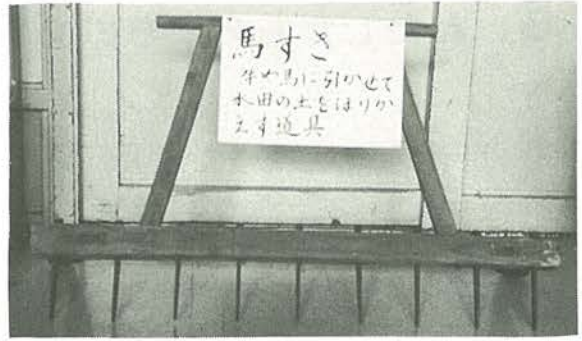 馬すき
牛や馬に引かせて
水田の土をほりか
えす道具